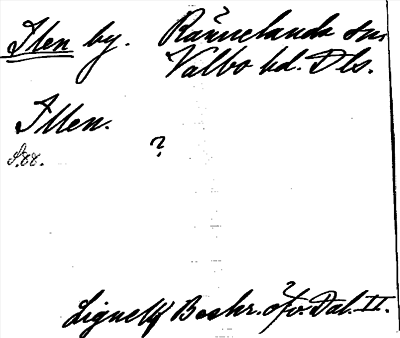 Ilen by. Rännelanda sn.
Valbo hd. Dls.
Illen.
?
Lignell, Beskr. öfv. Dal. II.